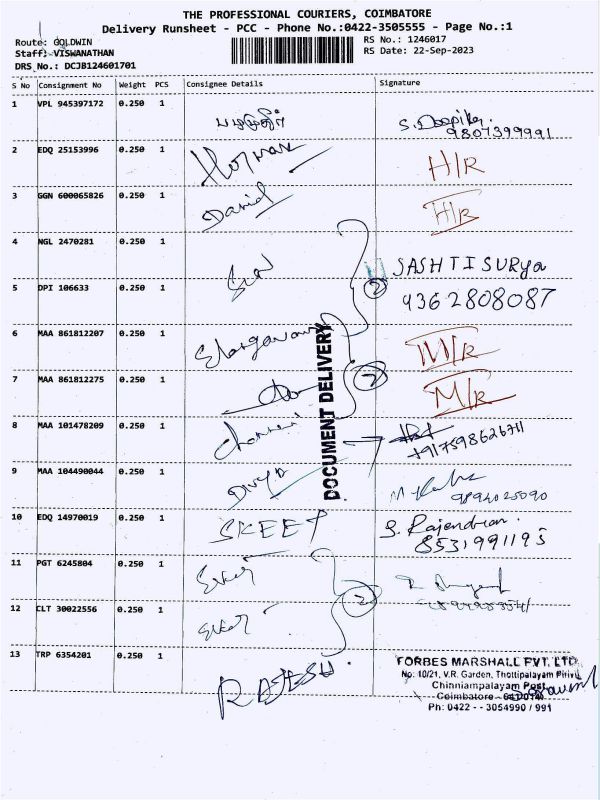 THE PROFESSIONAL COURIERS, COIMBATORE
Delivery Runsheet - PCC - Phone No.:0422-3505555 - Page No.:1
Route: GOLDWIN
RS No.: 1246017
Staff: VISWANATHAN
RS Date: 22-Sep-2023
DRS_No.: DCJB124601701
S No Consignment No Weight PCS Consignee Details Signature
1 VPL 945397172 0.250 1 S. Deepika
9807399991
2 EDQ 25153996 0.250 1 H/R
3 GGN 600065826 0.250 1 Daniel H/R
4 NGL 2470281 0.250 1 SASHTI SURYA
5 DPI 106633 0.250 1 2 9362808087
6 MAA 861812207 0.250 1 Elangavan M/R
7 MAA 861812275 0.250 1 2 M/R
DOCUMENT DELIVERY
8 MAA 101478209 0.250 1
+917598626711
9 MAA 104490044 0.250 1 Divya
9894025090
10 EDQ 14970019 0.250 1 SKEET S. Rajendran.
8531991195
11 PGT 6245804 0.250 1
2
12 CLT 30022556 0.250 1
13 TRP 6354201 0.250 1 RAJESH
FORBES MARSHALL PVT. LTD.
No: 10/21, V.R. Garden, Thottipalayam Pirivu
Chinniampalayam Post
Coimbatore
Ph: 0422 - - 3054990 / 991